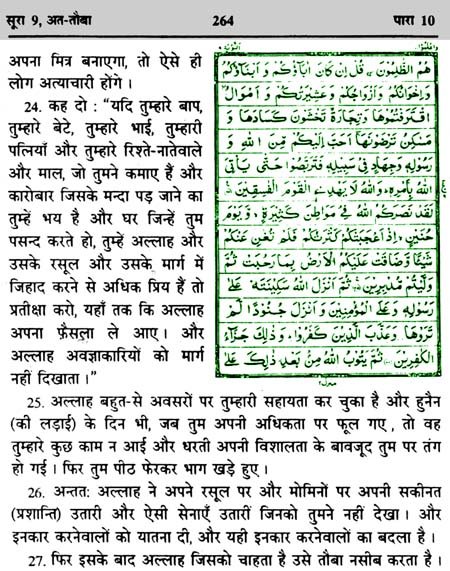 सूरा 9, अत-तौबा
264
पारा 10
अपना मित्र बनाएगा, तो ऐसे ही
लोग अत्याचारी होंगे ।
24. कह दो : “यदि तुम्हारे बाप,
तुम्हारे बेटे, तुम्हारे भाई, तुम्हारी
पत्नियाँ और तुम्हारे रिश्ते-नातेवाले
और माल, जो तुमने कमाए हैं और
कारोबार जिसके मन्दा पड़ जाने का
तुम्हें भय है और घर जिन्हें तुम
पसन्द करते हो, तुम्हें अल्लाह और
उसके रसूल और उसके मार्ग में
जिहाद करने से अधिक प्रिय हैं तो
प्रतीक्षा करो, यहाँ तक कि अल्लाह
अपना फ़ैसला ले आए । और
अल्लाह अवज्ञाकारियों को मार्ग
नहीं दिखाता ।”
هُمُ الظّٰلِمُوْنَ قُلْ اِنْ كَانَ اٰبَآؤُكُمْ وَ اَبْنَآؤُكُمْ
وَ اِخْوَانُكُمْ وَ اَزْوَاجُكُمْ وَ عَشِيْرَتُكُمْ وَ اَمْوَالُ
اقْتَرَفْتُمُوْهَا وَ تِجَارَةٌ تَخْشَوْنَ كَسَادَهَا وَ
مَسٰكِنُ تَرْضَوْنَهَاۤ اَحَبَّ اِلَيْكُمْ مِّنَ اللّٰهِ وَ
رَسُوْلِهٖ وَ جِهَادٍ فِيْ سَبِيْلِهٖ فَتَرَبَّصُوْا حَتّٰى يَاْتِيَ
اللّٰهُ بِاَمْرِهٖ وَ اللّٰهُ لَا يَهْدِي الْقَوْمَ الْفٰسِقِيْنَ
لَقَدْ نَصَرَكُمُ اللّٰهُ فِيْ مَوَاطِنَ كَثِيْرَةٍ وَّ يَوْمَ
حُنَيْنٍ اِذْ اَعْجَبَتْكُمْ كَثْرَتُكُمْ فَلَمْ تُغْنِ عَنْكُمْ
شَيْـًٔا وَّ ضَاقَتْ عَلَيْكُمُ الْاَرْضُ بِمَا رَحُبَتْ ثُمَّ
وَلَّيْتُمْ مُّدْبِرِيْنَ ثُمَّ اَنْزَلَ اللّٰهُ سَكِيْنَتَهٗ عَلٰى
رَسُوْلِهٖ وَ عَلَى الْمُؤْمِنِيْنَ وَ اَنْزَلَ جُنُوْدًا لَّمْ
تَرَوْهَا وَ عَذَّبَ الَّذِيْنَ كَفَرُوْا وَ ذٰلِكَ جَزَآءُ
الْكٰفِرِيْنَ ثُمَّ يَتُوْبُ اللّٰهُ مِنْ بَعْدِ ذٰلِكَ عَلٰى
25. अल्लाह बहुत-से अवसरों पर तुम्हारी सहायता कर चुका है और हुनैन
(की लड़ाई) के दिन भी, जब तुम अपनी अधिकता पर फूल गए , तो वह
तुम्हारे कुछ काम न आई और धरती अपनी विशालता के बावजूद तुम पर तंग
हो गई । फिर तुम पीठ फेरकर भाग खड़े हुए ।
26. अन्तत: अल्लाह ने अपने रसूल पर और मोमिनों पर अपनी सकीनत
(प्रशान्ति) उतारी और ऐसी सेनाएँ उतारीं जिनको तुमने नहीं देखा । और
इनकार करनेवालों को यातना दी, और यही इनकार करनेवालों का बदला है ।
27. फिर इसके बाद अल्लाह जिसको चाहता है उसे तौबा नसीब करता है ।